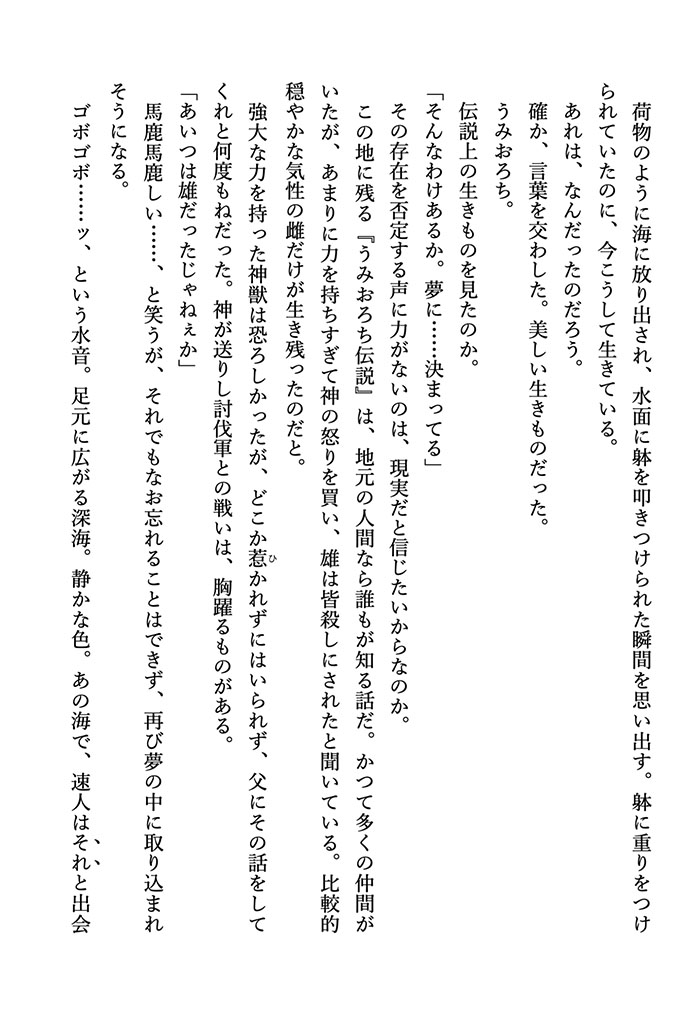 荷物のように海に放り出され、水面に躰を叩きつけられた瞬間を思い出す。躰に重りをつけ
られていたのに、今こうして生きている。
　あれは、なんだったのだろう。
　確か、言葉を交わした。美しい生きものだった。
　うみおろち。
　伝説上の生きものを見たのか。
「そんなわけあるか。夢に……決まってる」
　その存在を否定する声に力がないのは、現実だと信じたいからなのか。
　この地に残る『うみおろち伝説』は、地元の人間なら誰もが知る話だ。かつて多くの仲間が
いたが、あまりに力を持ちすぎて神の怒りを買い、雄は皆殺しにされたと聞いている。比較的
穏やかな気性の雌だけが生き残ったのだと。
　強大な力を持った神獣は恐ろしかったが、どこか惹かれずにはいられず、父にその話をして
くれと何度もねだった。神が送りし討伐軍との戦いは、胸躍るものがある。
「あいつは雄だったじゃねぇか」
　馬鹿馬鹿しい……、と笑うが、それでもなお忘れることはできず、再び夢の中に取り込まれ
そうになる。
　ゴボゴボ……ッ、という水音。足元に広がる深海。静かな色。あの海で、速人はそれと出会